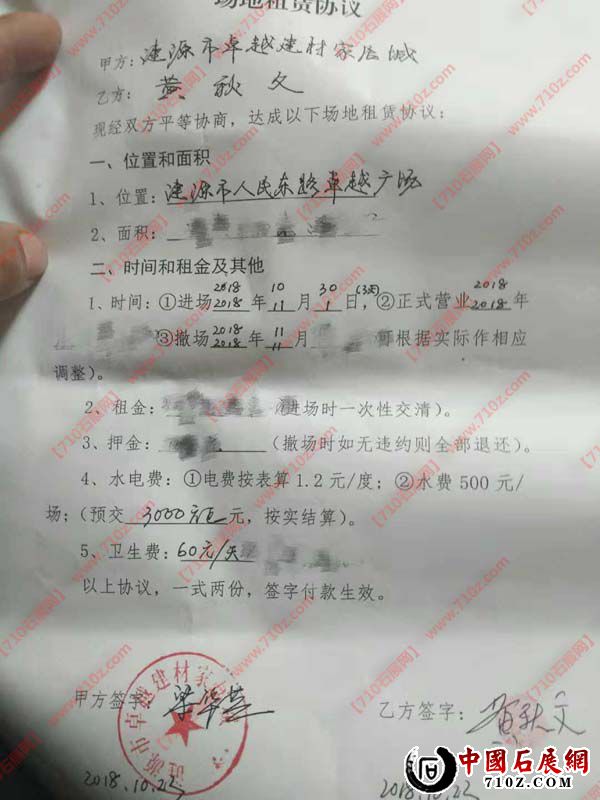 场地租赁协议
甲方：涟源市卓越建材家居城
乙方：黄秋文
现经双方平等协商，达成以下场地租赁协议：
一、位置和面积
1、位置：涟源市人民东路卓越广场
2、面积：
二、时间和租金及其他
2018 10 30 2018
1、时间：①进场2018年11月1日，(3天)②正式营业2018年
2018 11
③撤场2018年11月 根据实际作相应
调整）。
2、租金： 进场时一次性交清）。
3、押金： （撤场时如无违约则全部退还）。
4、水电费：①电费按表算1.2元/度；②水费500元/
场；（预交3000元，按实结算）。
5、卫生费：60元/天
以上协议，一式两份，签字付款生效。
甲方签字：
乙方签字：黄秋文
2018.10.22
2018.10.22
涟源市卓越建材家
【710石展网】www.710z.com
中国石展網
www.710z.com